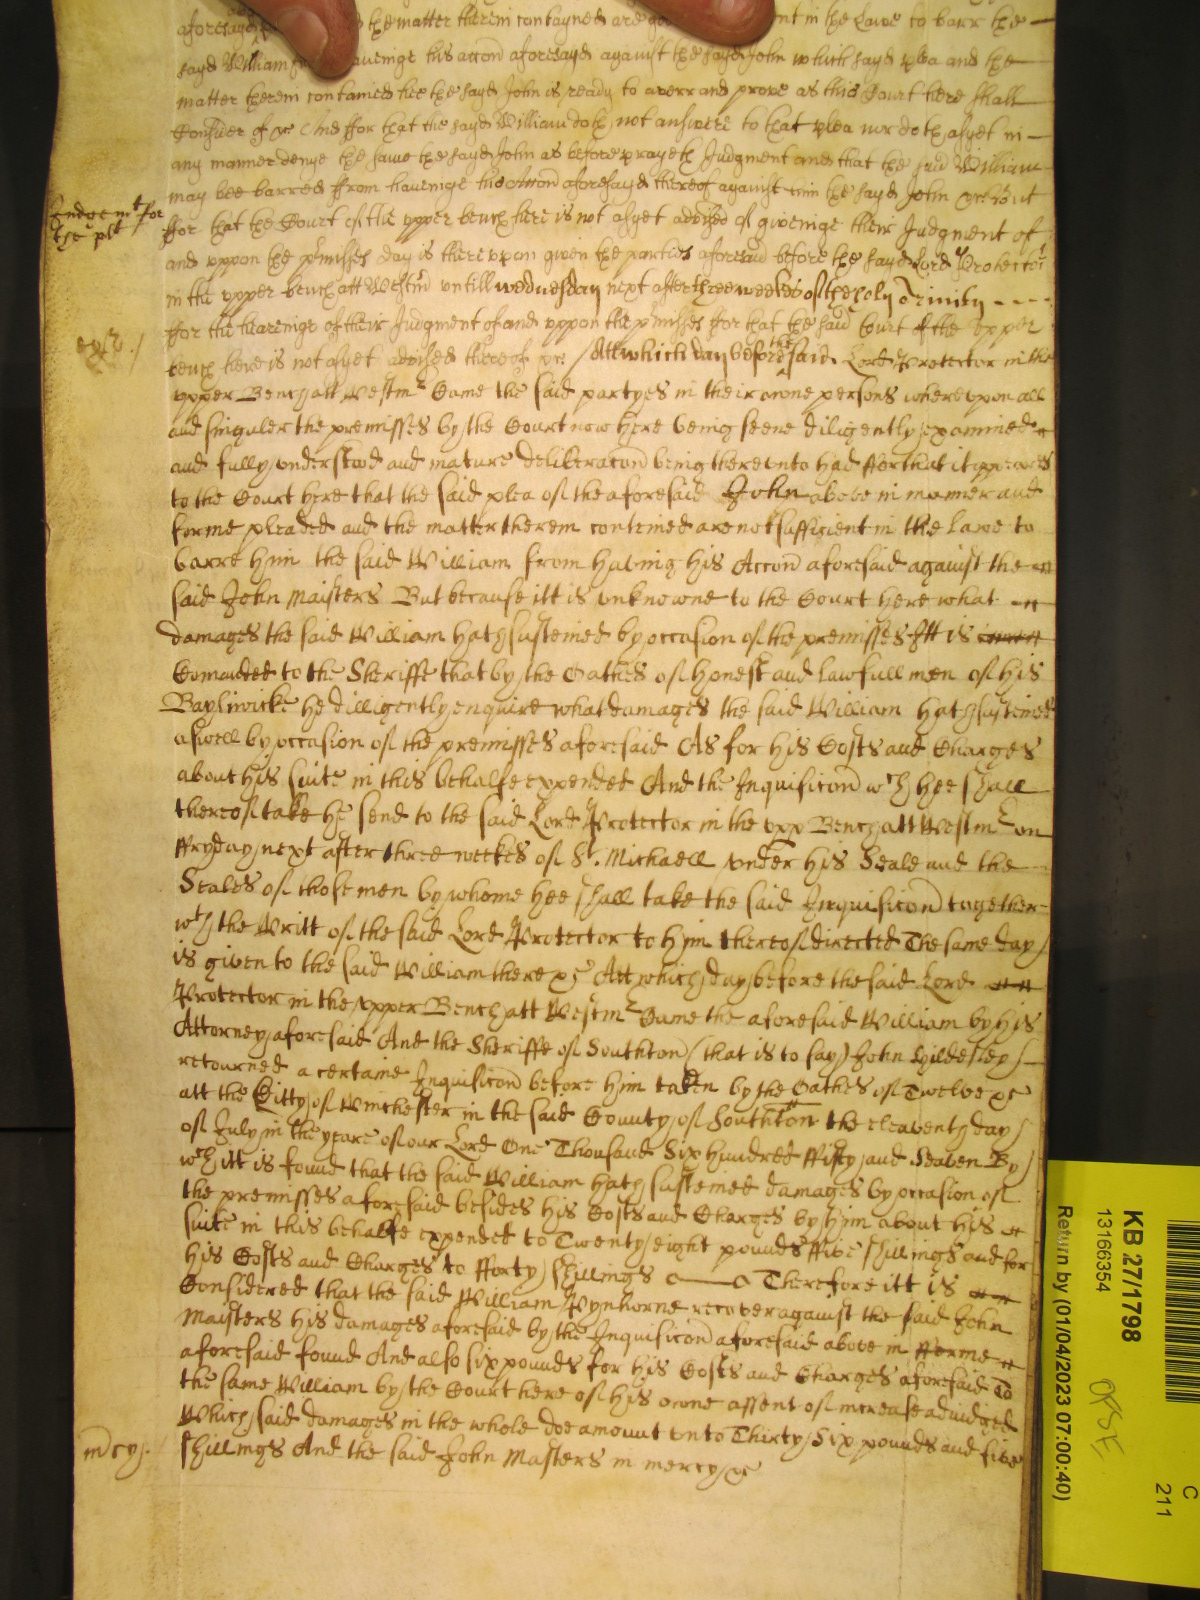 aforesayd the matter therein contayned are not in the Lawe to barr the
sayd William haveinge his accon aforesayd against the sayd John which sayd plea and the
matter therein contained hee the sayd John is ready to averr and prove as this Court here shall
Consider of &c And ffor that the sayd William doth not answere to that plea nor doth asyet in
any manner denye the same the sayd John as before prayeth Judgment and that the said William
may bee barred from haveinge his Accon aforesayd thereof against him the sayd John &c But
Judgemt for
the plt
ffor that the Court of the upper bench here is not asyet advised of giveinge their Judgment of
and uppon the pmisses day is thereupon given the parties aforesaid before the sayd Lord Protector
in the upper bench att Westmr untill wednesday next after three weekes of the holy Trinity
ffor the heareinge of their Judgment of and uppon the pmisses ffor that the said Court of the upper
bench here is not asyet advised thereof &c / Att which day before the said Lord Protector in the
upper Bench att Westmr Came the said partyes in their owne persons whereupon all
and singuler the premisses by the Court now here being seene diligently examined
and fully understood and mature deliberacon being thereunto had fforthat it appeares
to the Court here that the said plea of the aforesaid John above in manner and
forme pleaded and the matter therein conteined are not sufficient in the Lawe to
barre him the said William from having his Accon aforesaid against the
said John Maisters But because itt is unknowne to the Court here what
damages the said William hath susteined by occasion of the premisses Itt is
Comanded to the Sheriffe that by the Oathes of honest and lawfull men of his
Bayliwicke he dilligently enquire what damages the said William hath susteined
aswell by occasion of the premisses aforesaid As for his Costs and Charges
about his suite in this behalfe expended And the Inquisicon wch hee shall
thereof take he send to the said Lord Protector in the upp Bench att Westmr on
ffryday next after three weekes of St. Michaell under his Seale and the
Seales of those men by whome hee shall take the said Inquisicon together
wth the Writt of the said Lord Protector to him thereof directed The same day
is given to the said William there &c Att which day before the said Lord
Protector in the upper Bench att Westmr Came the aforesaid William by his
Attorney aforesaid And the Sheriffe of Southton (that is to say) John Hildesley
retourned a certaine Inquisicon before him taken by the Oathes of Twelve &c
att the Citty of Winchester in the said County of Southton the eleaventh day
of July in the yeare of our Lord One Thousand Six hundred ffifty and Seaven By
wch itt is found that the said William hath susteined damages by occasion of
the premisses aforesaid besides his Costs and Charges by him about his
suite in this behalfe expended to Twenty eight pounds ffive shillings and for
his Costs and Charges to fforty shillings Therefore itt is
Considered that the said William Wynhorne recover against the said John
Maisters his damages aforesaid by the Inquisicon aforesaid above in fforme
aforesaid found And also six pounds for his Costs and Charges aforesaid To
the same William by the Court here of his owne assent of increase adiudged
Which said damages in the whole doe amount unto Thirty Six pounds and five
mercy.
shillings And the said John Masters in mercy &c
KB 27/1798
13166354
Return by (01/04/2023 07:00:40)
C
211